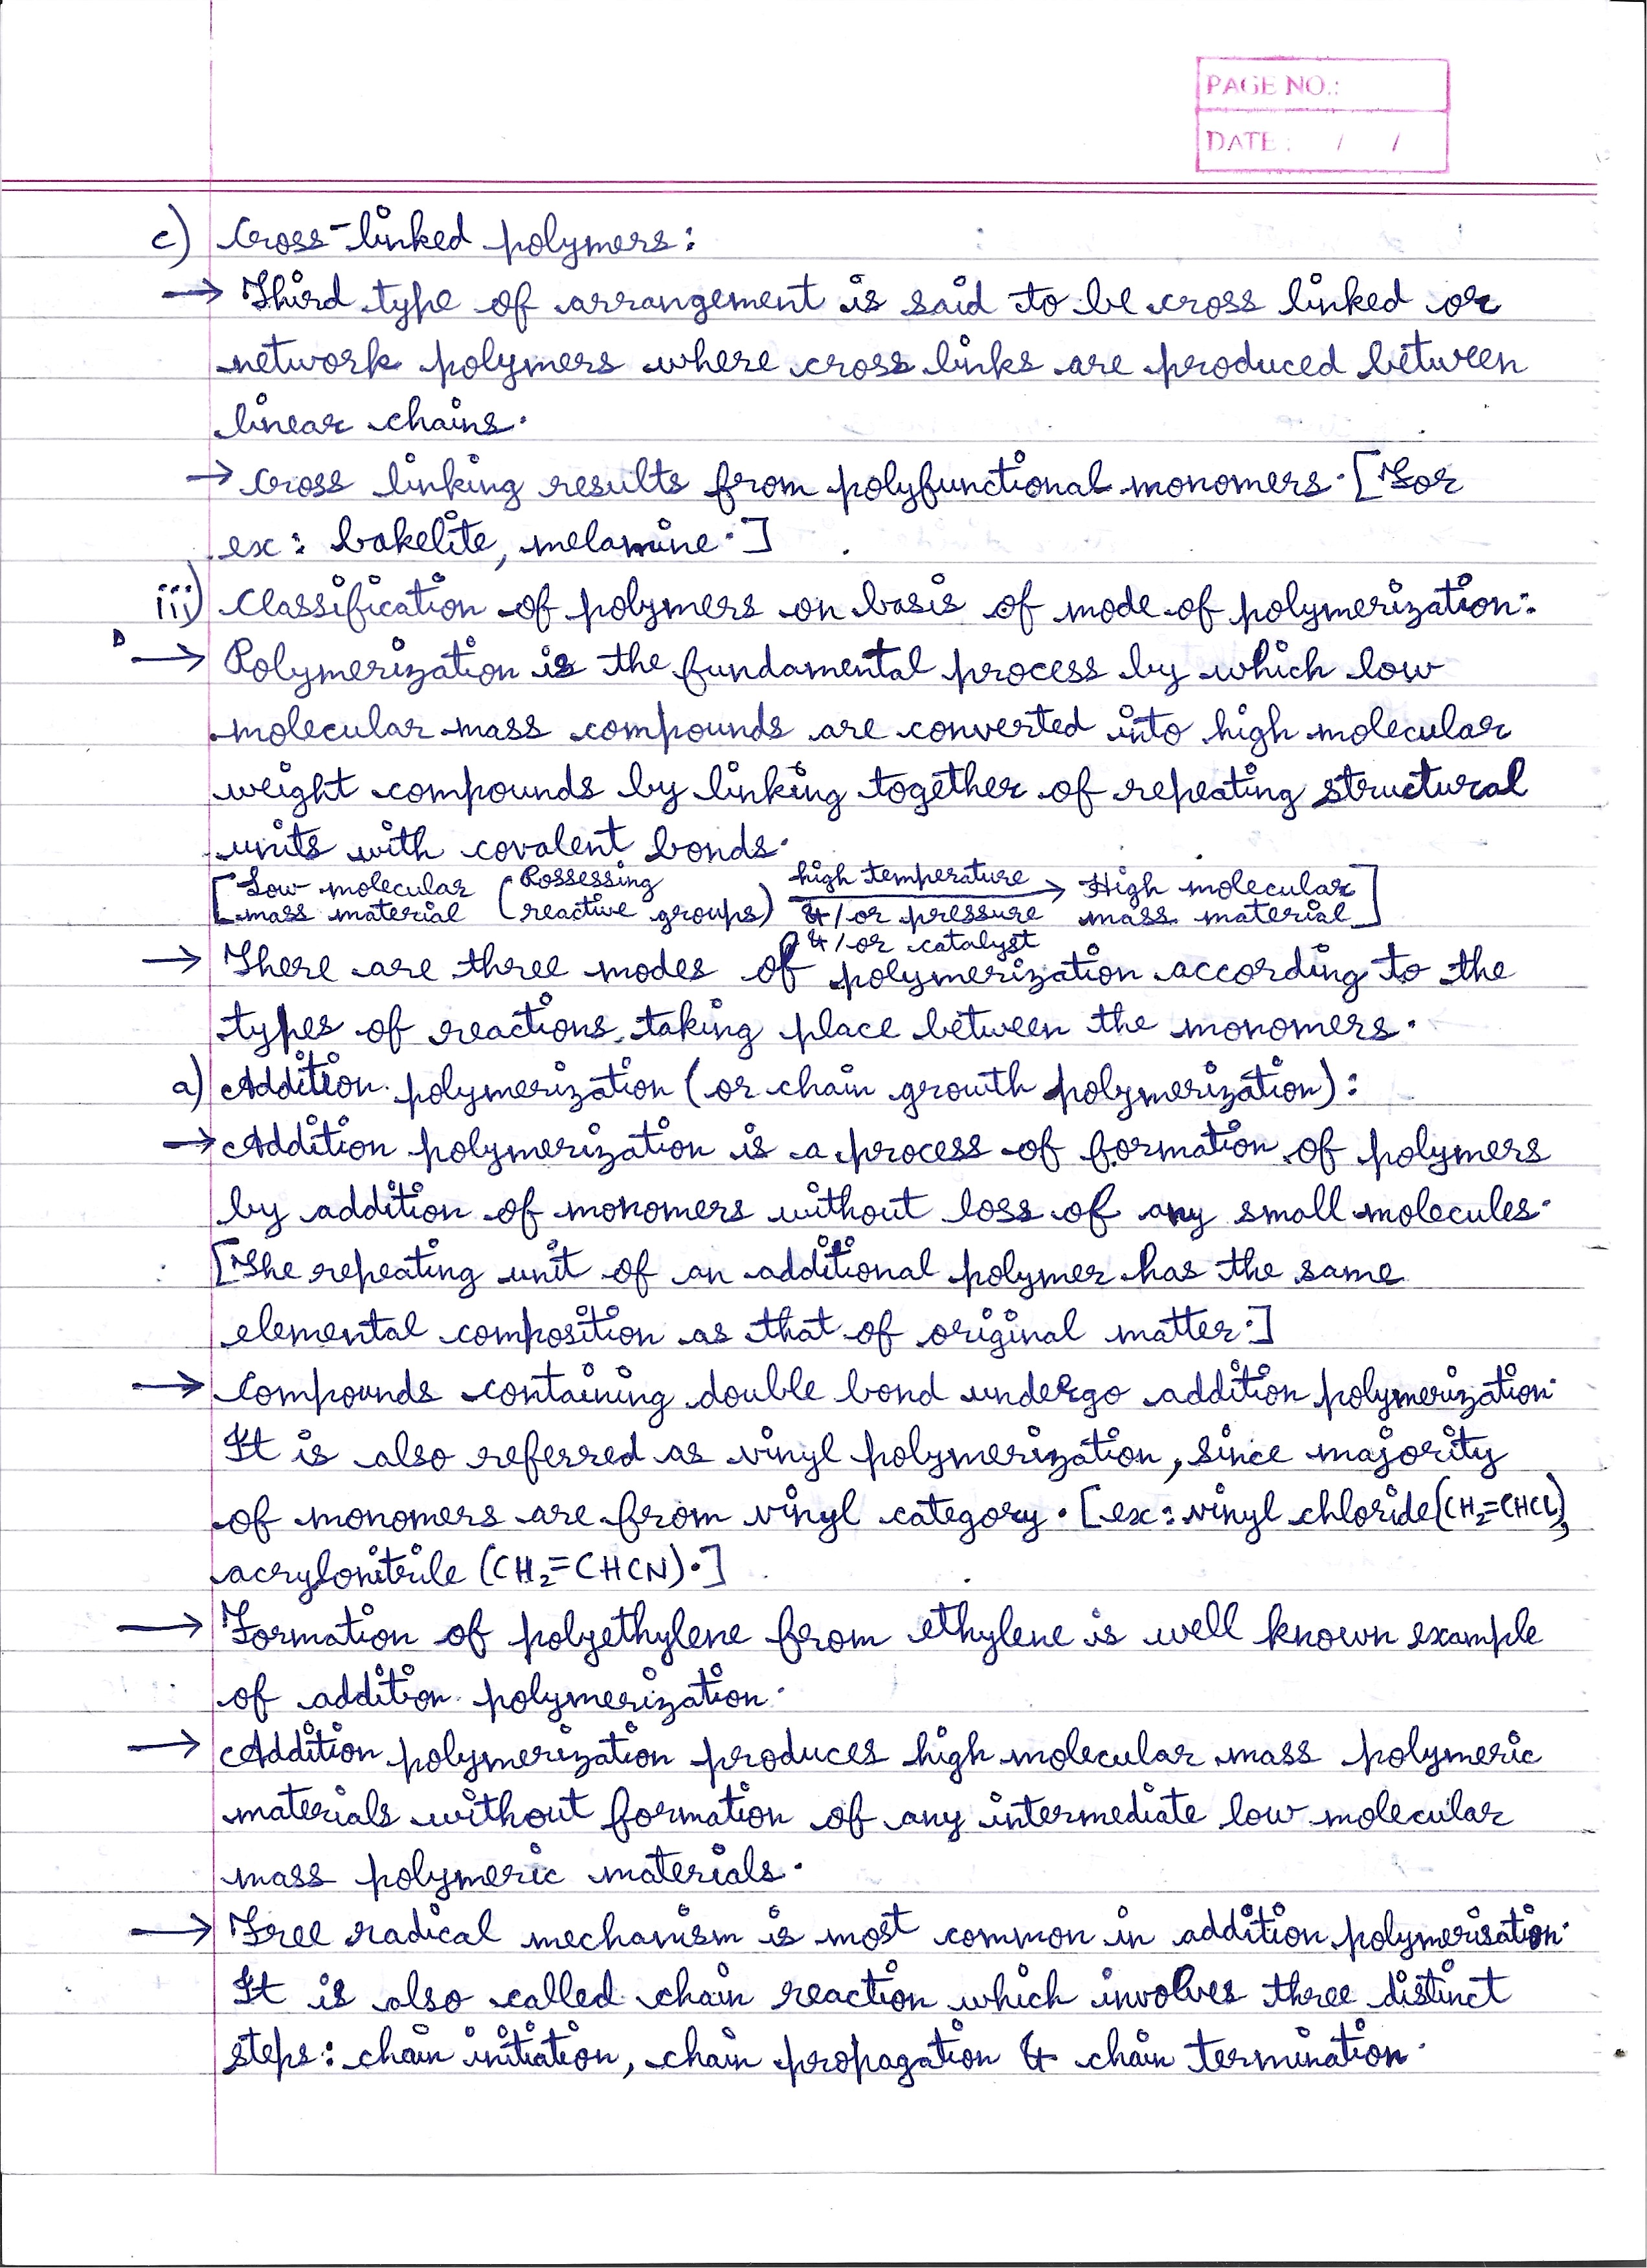 PAGE NO.:
DATE: / /
c) Cross-linked polymers:
→ Third type of arrangement is said to be cross linked or
network polymers where cross links are produced between
linear chains.
→ Cross linking results from polyfunctional monomers. [For
ex: bakelite, melamine.]
iii) Classification of polymers on basis of mode of polymerization:
→ Polymerization is the fundamental process by which low
molecular mass compounds are converted into high molecular
weight compounds by linking together of repeating structural
units with covalent bonds.
[Low molecular (Possessing high temperature → High molecular]
mass material reactive groups) &/or pressure mass material]
&/or catalyst
→ There are three modes of polymerization according to the
types of reactions taking place between the monomers.
a) Addition polymerization (or chain growth polymerization):
→ Addition polymerization is a process of formation of polymers
by addition of monomers without loss of any small molecules.
[The repeating unit of an additional polymer has the same
elemental composition as that of original matter.]
→ Compounds containing double bond undergo addition polymerization.
It is also referred as vinyl polymerization, since majority
of monomers are from vinyl category. [ex: vinyl chloride (CH₂=CHCl),
acrylonitrile (CH₂=CHCN).]
→ Formation of polyethylene from ethylene is well known example
of addition polymerization.
→ Addition polymerization produces high molecular mass polymeric
materials without formation of any intermediate low molecular
mass polymeric materials.
→ Free radical mechanism is most common in addition polymerisation.
It is also called chain reaction which involves three distinct
steps: chain initiation, chain propagation & chain termination.